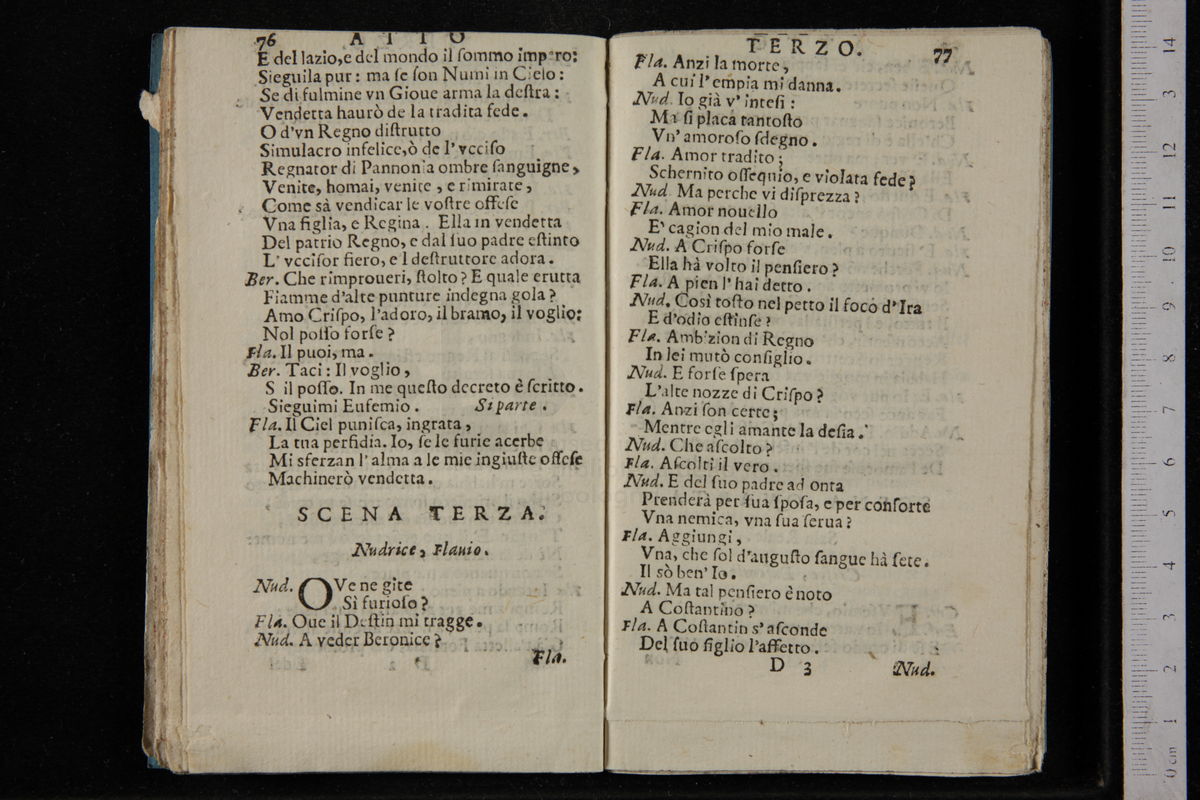 76 ATTO
E del lazio,e del mondo il ſommo impero:
Sieguila pur : ma ſe ſon Numi in Cielo :
Se di fulmine vn Gioue arma la deſtra :
Vendetta haurò de la tradita fede.
O d'vn Regno diſtrutto
Simulacro infelice,ò de l'vcciſo
Regnator di Pannonia ombre ſanguigne,
Venite, homai, venite , e rimirate,
Come sà vendicar le voſtre offeſe
Vna figlia, e Regina . Ella in vendetta
Del patrio Regno, e dal ſuo padre eſtinto
L' vcciſor fiero, e'l deſtruttore adora.
Ber. Che rimproueri, ſtolto? E quale erutta
Fiamme d'alte punture indegna gola?
Amo Criſpo, l'adoro, il bramo, il voglio:
Nol poſſo forſe ?
Fla. Il puoi, ma.
Ber. Taci : Il voglio,
S il poſſo. In me queſto decreto è ſcritto.
Sieguimi Eufemio. Si parte.
Fla. Il Ciel puniſca, ingrata,
La tua perfidia. Io, ſe le furie acerbe
Mi sferzan l'alma a le mie ingiuſte offeſe
Machinerò vendetta.
SCENA TERZA.
Nudrice, Flauio.
Nud. OVe ne gite
Sì furioſo ?
Fla. Oue il Deſtin mi tragge.
Nud. A veder Beronice ?
Fla.
TERZO. 77
Fla. Anzi la morte,
A cui l'empia mi danna.
Nud. Io già v'inteſi :
Ma ſi placa tantoſto
Vn'amoroſo ſdegno.
Fla. Amor tradito;
Schernito oſſequio, e violata fede?
Nud. Ma perche vi diſprezza ?
Fla. Amor nouello
E' cagion del mio male.
Nud. A Criſpo forſe
Ella hà volto il penſiero ?
Fla. A pien l'hai detto .
Nud. Così toſto nel petto il foco d'Ira
E d'odio eſtinſe ?
Fla. Ambizion di Regno
In lei mutò conſiglio.
Nud. E forſe ſpera
L'alte nozze di Criſpo ?
Fla. Anzi ſon certe;
Mentre egli amante la deſia.
Nud. Che aſcolto ?
Fla. Aſcolti il vero .
Nud. E del ſuo padre ad onta
Prenderà per ſua ſpoſa, e per conſorte
Vna nemica, vna ſua ſerua ?
Fla. Aggiungi,
Vna, che ſol d'auguſto ſangue hà ſete.
Il sò ben' Io.
Nud. Ma tal penſiero è noto
A Coſtantino ?
Fla. A Coſtantin s'aſconde
Del ſuo figlio l'affetto.
D 3 Nud.
14
13
12
11
10
9
8
7
6
5
4
3
2
1
0 cm